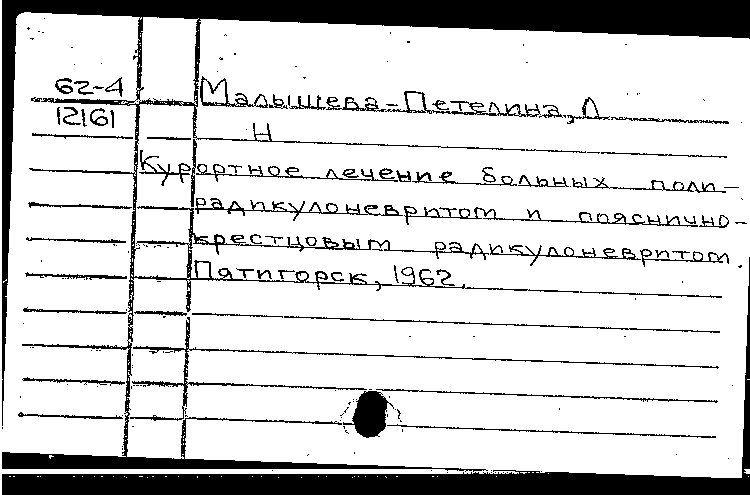 62-4 Малышева-Петелина, Л
12161 Н
Курортное лечение больных поли-
радикулоневритом и пояснично-
крестцовым радикулоневритом.
Пятигорск, 1962.